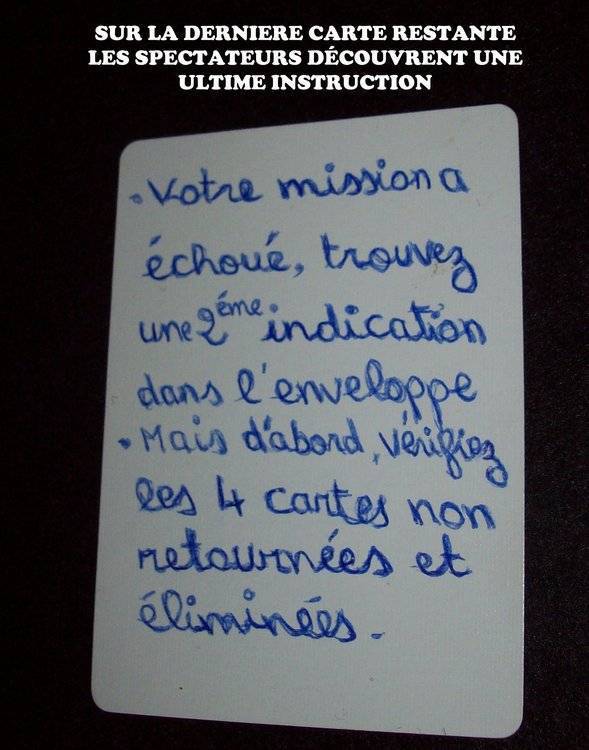 SUR LA DERNIERE CARTE RESTANTE
LES SPECTATEURS DÉCOUVRENT UNE
ULTIME INSTRUCTION
• Votre mission a
échoué, trouvez
une 2ème indication
dans l'enveloppe
• Mais d'abord, vérifiez
les 4 cartes non
retournées et
éliminées.